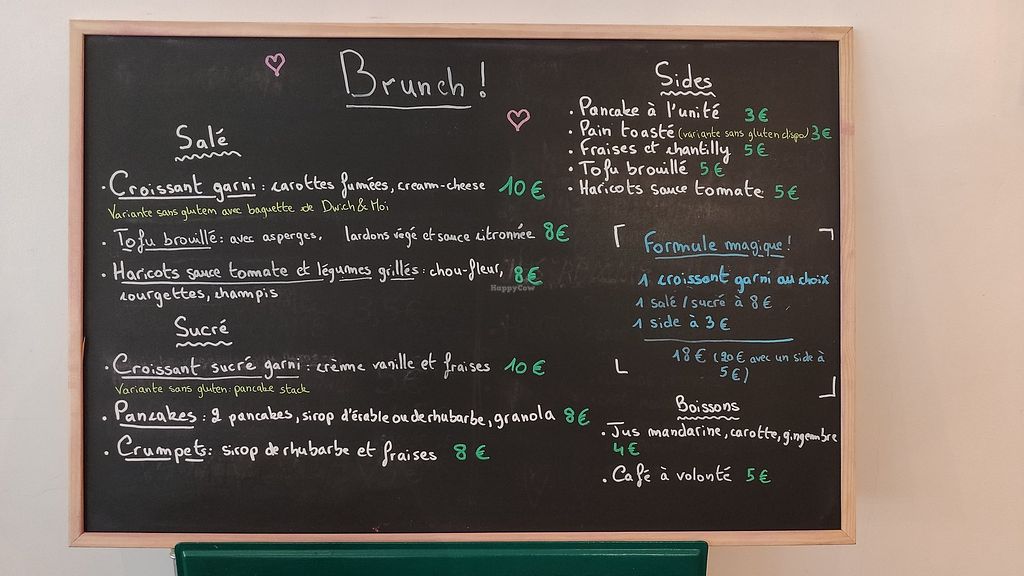 Brunch !
Salé
• Croissant garni : carottes fumées, cream-cheese 10€
Variante sans gluten avec baguette de Dwich & Moi
• Tofu brouillé : avec asperges, lardons végé et sauce citronnée 8€
• Haricots sauce tomate et légumes grillés : chou-fleur, 8€
courgettes, champis
Sucré
• Croissant sucré garni : crème vanille et fraises 10€
Variante sans gluten : pancake stack
• Pancakes : 2 pancakes, sirop d'érable ou de rhubarbe, granola 8€
• Crumpets : sirop de rhubarbe et fraises 8€
Sides
• Pancake à l'unité 3€
• Pain toasté (variante sans gluten dispo) 3€
• Fraises et chantilly 5€
• Tofu brouillé 5€
• Haricots sauce tomate 5€
Formule magique !
1 croissant garni au choix
1 salé/sucré à 8€
1 side à 3€
18€ (20€ avec un side à
5€)
Boissons
• Jus mandarine, carotte, gingembre
4€
• Café à volonté 5€
HappyCow